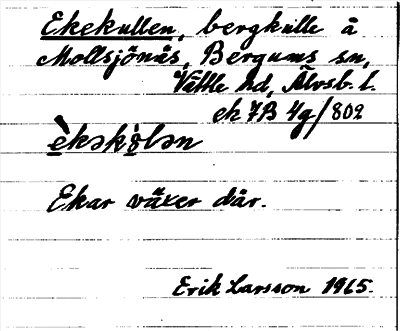 Ekekullen, bergkulle å
Mollsjönäs, Bergums sn,
Vättle hd, Älvsb. l.
ek 7B 4g/802
è̀kəkò̤lən
Ekar växer där.
Erik Larsson 1965.